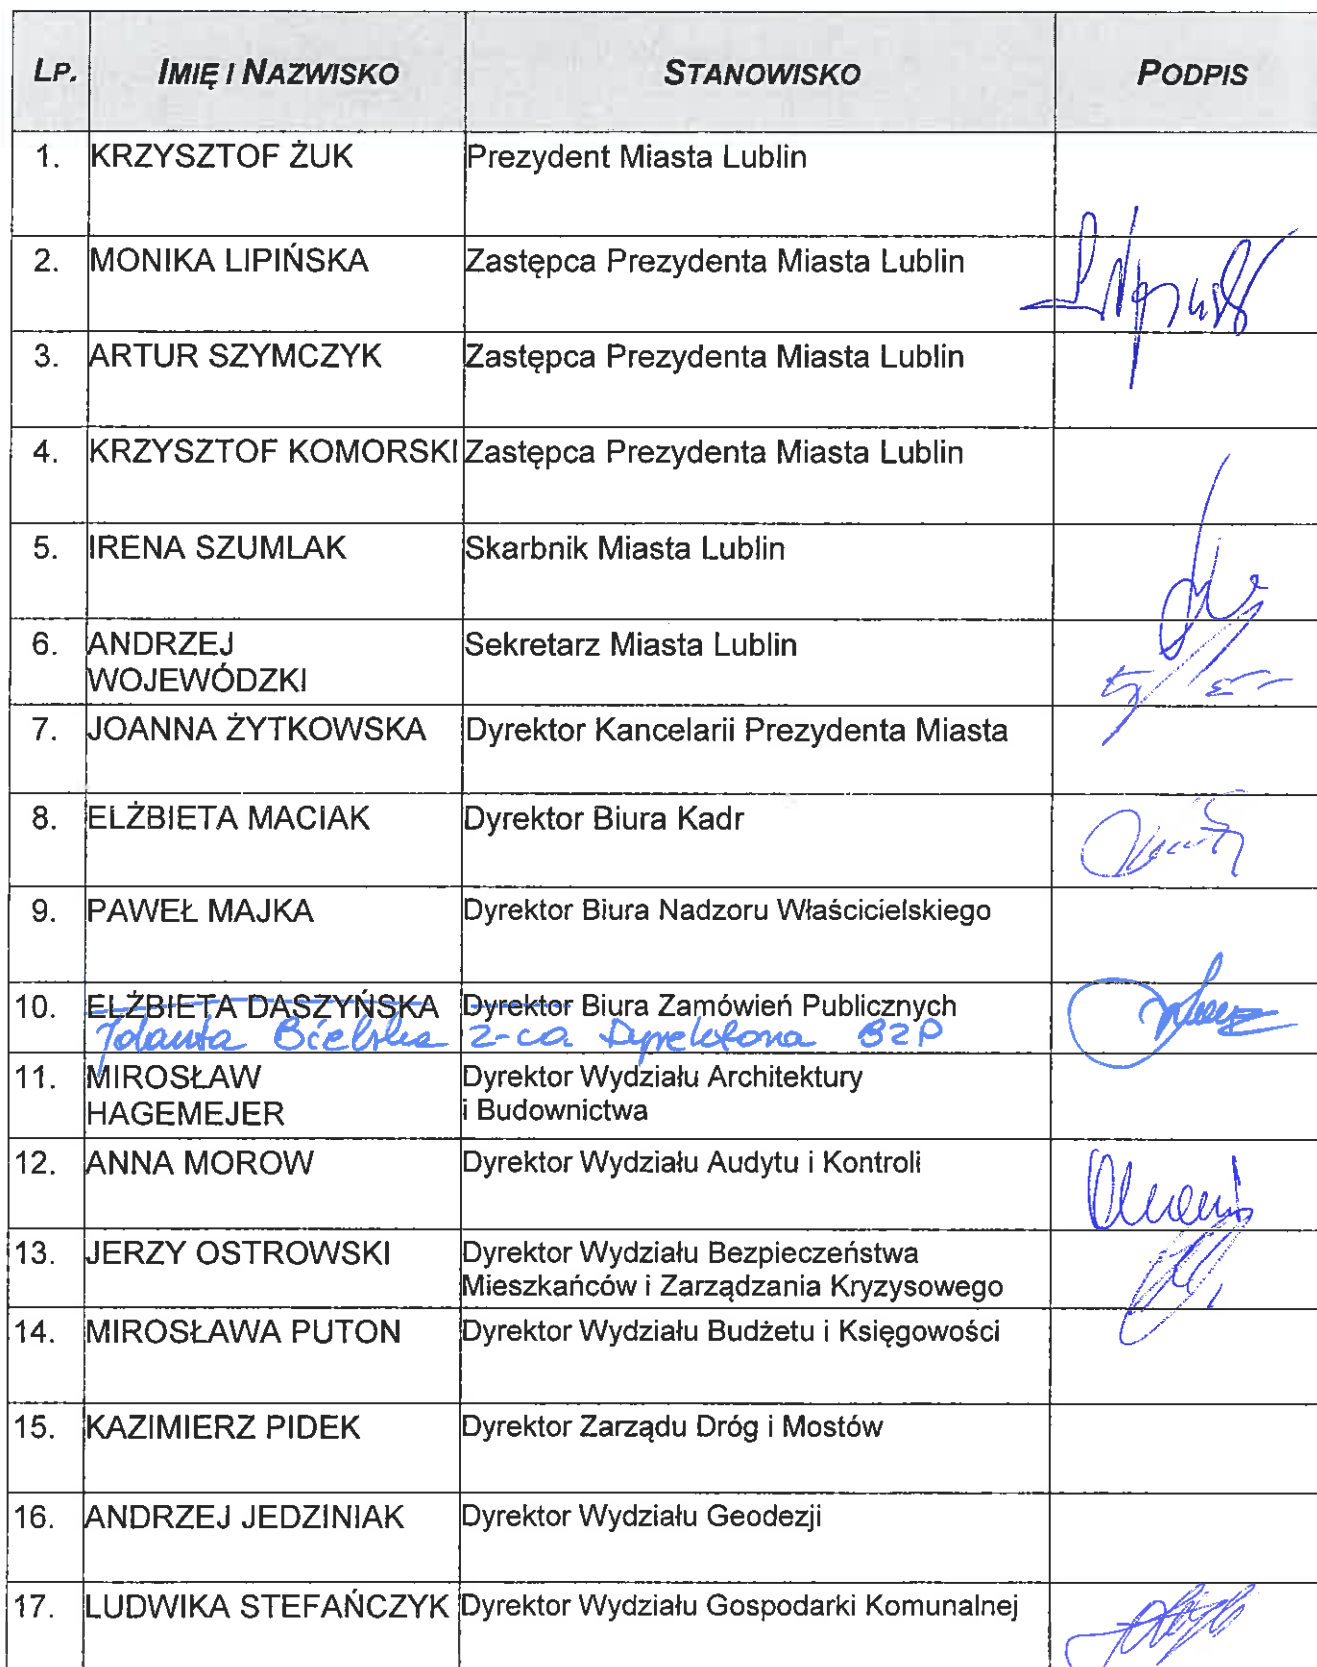 LP. IMIĘ I NAZWISKO STANOWISKO PODPIS
1. KRZYSZTOF ŻUK Prezydent Miasta Lublin
2. MONIKA LIPIŃSKA Zastępca Prezydenta Miasta Lublin
3. ARTUR SZYMCZYK Zastępca Prezydenta Miasta Lublin
4. KRZYSZTOF KOMORSKI Zastępca Prezydenta Miasta Lublin
5. IRENA SZUMLAK Skarbnik Miasta Lublin
6. ANDRZEJ Sekretarz Miasta Lublin
WOJEWÓDZKI
7. JOANNA ŻYTKOWSKA Dyrektor Kancelarii Prezydenta Miasta
8. ELŻBIETA MACIAK Dyrektor Biura Kadr
9. PAWEŁ MAJKA Dyrektor Biura Nadzoru Właścicielskiego
10. ELŻBIETA DASZYŃSKA Dyrektor Biura Zamówień Publicznych
Jolanta Bielska z-ca Dyrektora BZP
11. MIROSŁAW Dyrektor Wydziału Architektury
HAGEMEJER i Budownictwa
12. ANNA MOROW Dyrektor Wydziału Audytu i Kontroli
13. JERZY OSTROWSKI Dyrektor Wydziału Bezpieczeństwa
Mieszkańców i Zarządzania Kryzysowego
14. MIROSŁAWA PUTON Dyrektor Wydziału Budżetu i Księgowości
15. KAZIMIERZ PIDEK Dyrektor Zarządu Dróg i Mostów
16. ANDRZEJ JEDZINIAK Dyrektor Wydziału Geodezji
17. LUDWIKA STEFAŃCZYK Dyrektor Wydziału Gospodarki Komunalnej